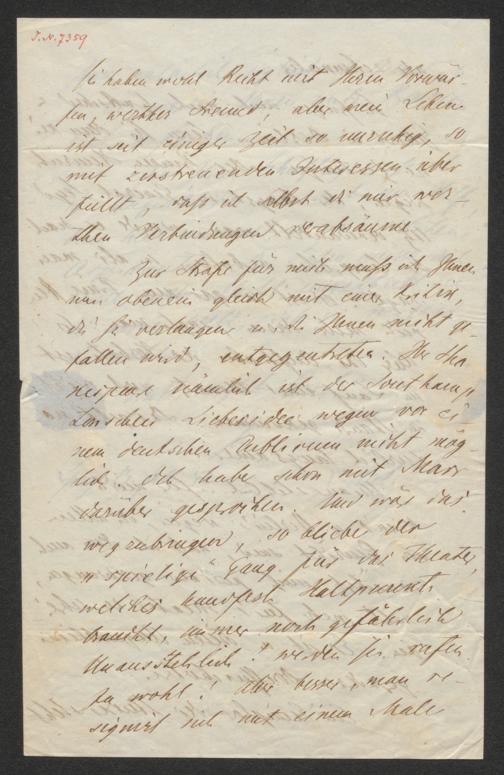 J.N. 7359
Sie haben wohl Recht mit Ihren Vorwür-
fen, werther Freund, aber mein Leben
ist seit einiger Zeit so unruhig, so
mit zerstreuenden Interessen über
füllt, daß ich selbst die mir wer-
then Verbindungen verabsäume
Zur Strafe für mich muß ich Ihnen
nun obenein gleich mit einer Kritik,
die Sie verlangen u. die Ihnen nicht ge
fallen wird, entgegentreten. Ihr Sha
kespeare nämlich ist der Southamp
tonschen Liebesidee wegen vor ei
nem deutschen Publicum nicht mög
lich. Ich habe schon mit Marr
darüber gesprochen. Und wär das
wegzubringen, so bliebe der
Gang für das Theater,
welches handfeste Haltpunkte
braucht, immer noch gefährlich
Unausstehlich! werden Sie rufen.
Ja wohl! Aber besser, man re
signirt sich mit einem Male